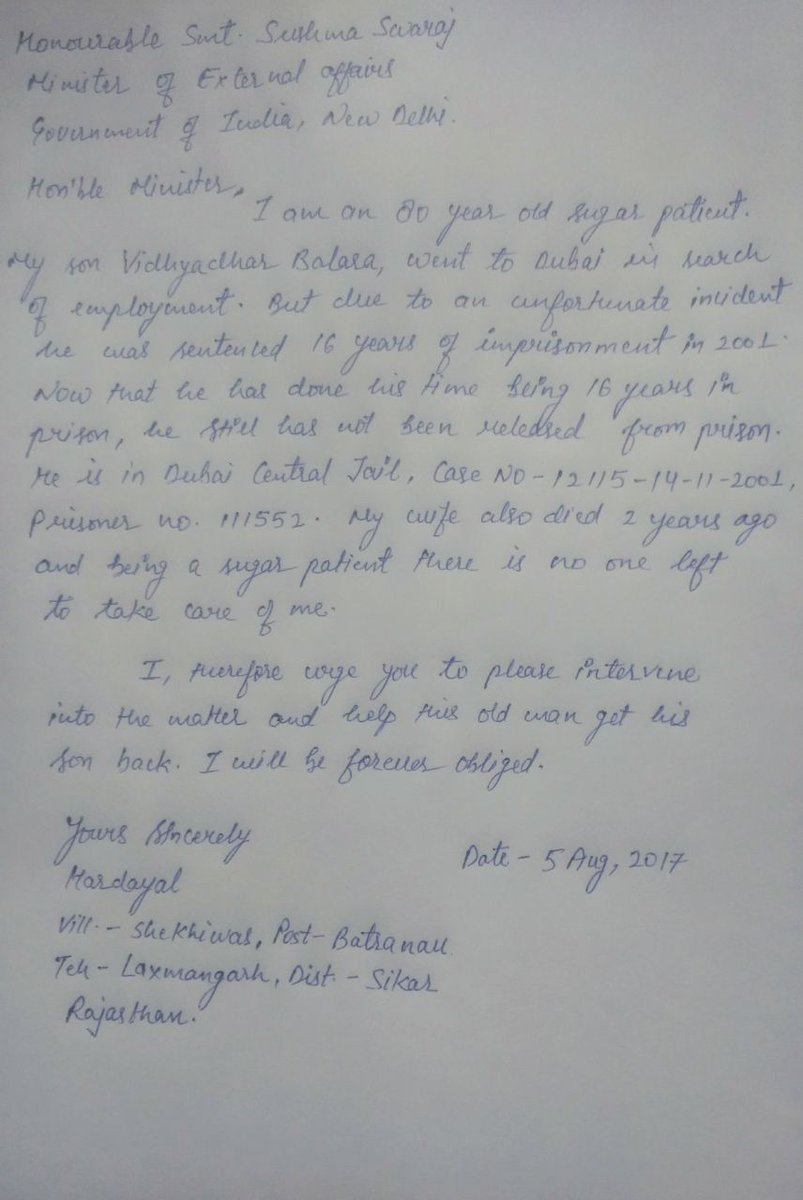 Honourable Smt. Sushma Swaraj
Minister of External affairs
Government of India, New Delhi.
Hon'ble Minister,
I am an 80 year old sugar patient.
My son Vidhyadhar Balara, went to Dubai in search
of employment. But due to an unfortunate incident
he was sentenced 16 years of imprisonment in 2001.
Now that he has done his time being 16 years in
prison, he still has not been released from prison.
He is in Dubai Central Jail, Case No - 12115-14-11-2001,
Prisoner no. 111552. My wife also died 2 years ago
and being a sugar patient there is no one left
to take care of me.
I, therefore urge you to please intervene
into the matter and help this old man get his
son back. I will be forever obliged.
Yours Sincerely
Date - 5 Aug, 2017
Hardayal
Vill. - Shekhiwas, Post - Batranau
Teh - Laxmangarh, Dist. - Sikar
Rajasthan.